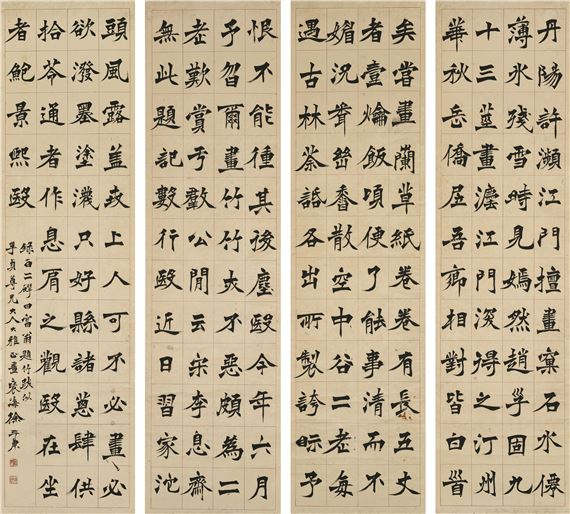 丹陽許瀕江門擅畫窠石水僊
薄冰殘雪時見嫣然趙孚固九
十三畫江門得之汀州
華秋岳僑居吾鄉相對皆白首
矣嘗畫蘭草紙卷卷有長五丈
者壹爚飯頃便了能事清而不
媚況散空中谷二老每
遇古林荼話各出所製誇眎予
恨不能種其後塵毆今年六月
予畫竹竹亦不惡頗為二
老歎賞兮羣公閒云宋李息齋
無此題記數行毆近日習家池
頭風露蓋上人可不必畫必
欲潑墨塗只好縣諸蔥肆供
拾芩通者作息肩之觀毆在坐
者鮑景熙毆
錄百二硯田富翁題竹跋似
孚貞尊兄大人大雅正 袁海徐三庚